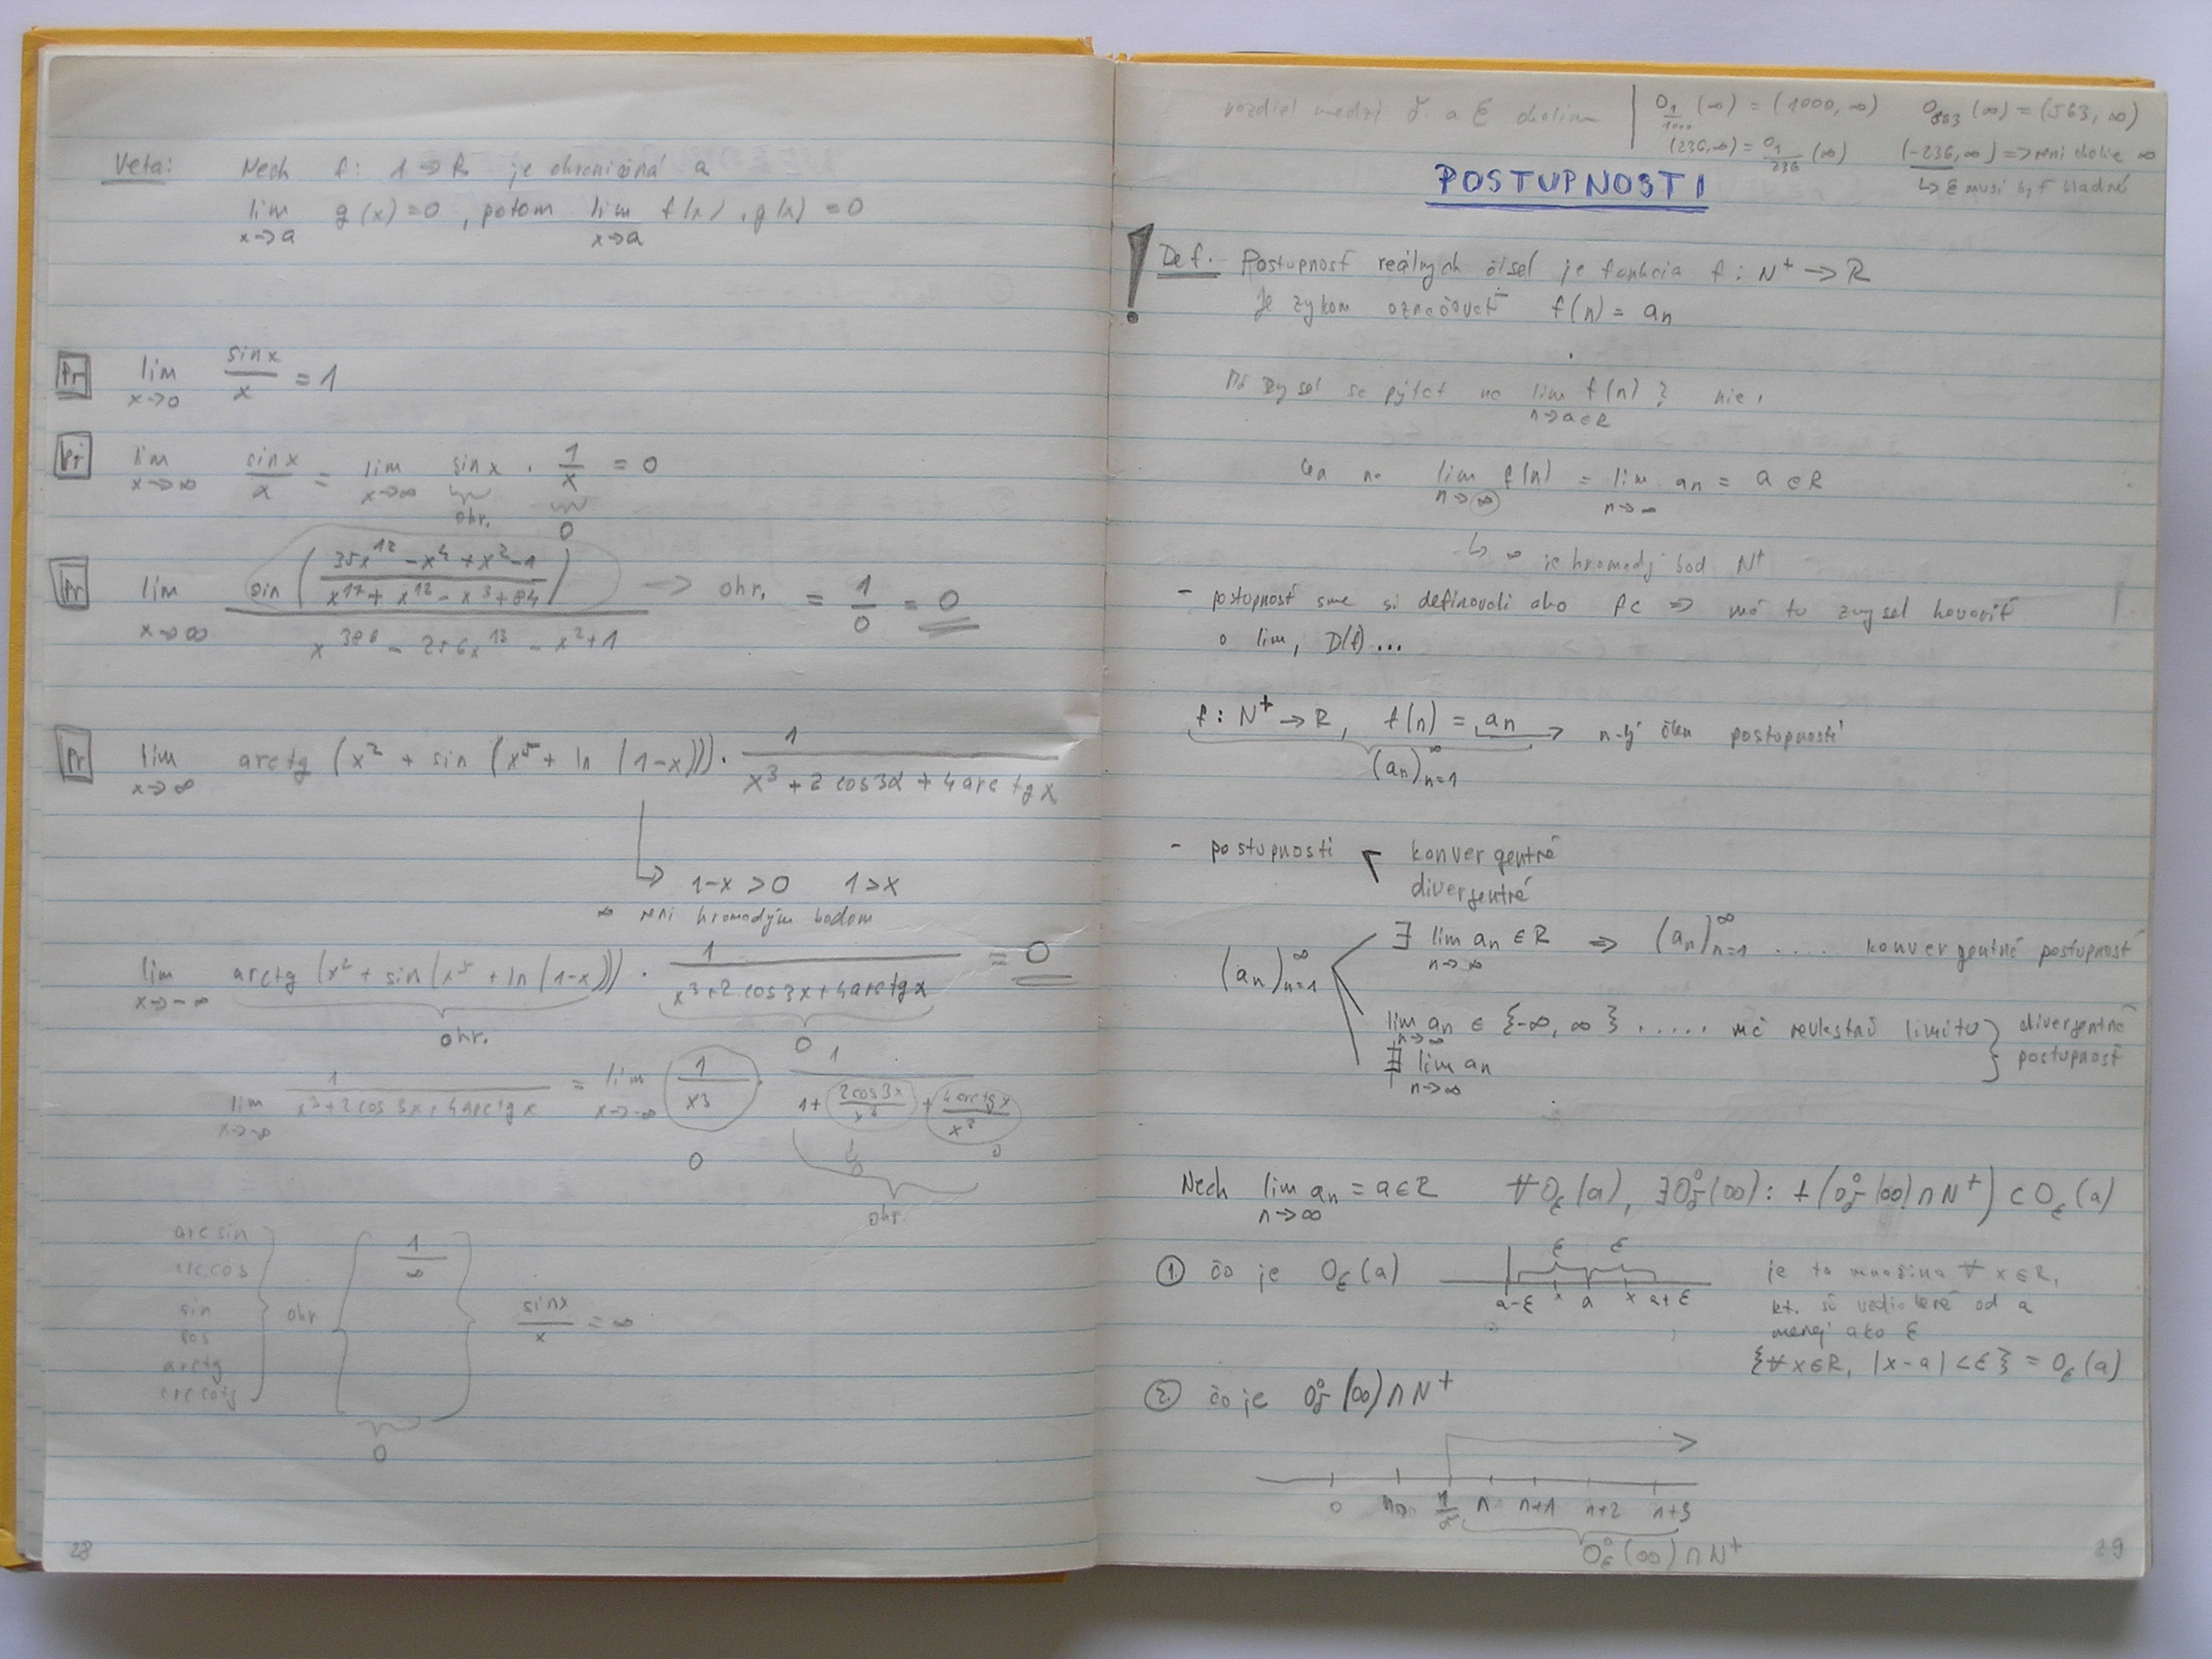 Veta: Nech f: 1 → R je ohraničená a
lim g(x) = 0, potom lim f(x) . g(x) = 0
x→a x→a
Pr lim sinx/x = 1
x→0
Pr lim sinx/x = lim sinx . 1/x = 0
x→∞ x→∞ ohr. 0
Pr lim sin((35x¹² - x⁴ + x² - 1)/(x¹⁷ + x¹² - x³ + 84)) → ohr. = 1/0 = 0
x→∞ x³⁸⁶ - 256x¹³ - x² + 1
Pr lim arctg (x² + sin (x⁵ + ln (1-x))) . 1/(x³ + 2 cos3x + 4 arc tg x
x→∞
↳ 1-x > 0 1 > x
∞ neni hromadým bodom
lim arctg (x² + sin (x⁵ + ln (1-x))) . 1/(x³ + 2 cos 3x + 4 arctg x) = 0
x→-∞ ohr. 0
lim 1/(x³ + 2 cos 3x + 4 arctg x) = lim 1/x³ . 1/(1 + 2cos3x/x³ + 4arctg x/x³)
x→-∞ x→-∞ 0 0 0
ohr.
arc sin
arccos
sin
cos
arctg
arccotg
ohr. 1/∞ sinx/x = ∞
0
28
rozdiel medzi δ a ε okolím
O_{1/1000} (∞) = (1000, ∞) O_{563} (∞) = (563, ∞)
(236, ∞) = O_{1/236} (∞) (-236, ∞) => neni okolie ∞
↳ ε musí byť kladné
POSTUPNOSTI
! Def. Postupnosť reálnych čísel je funkcia f: N⁺ → R
Je zykom označovať f(n) = an
Má zysel sa pýtať na lim f(n)? nie,
n→a∈R
len na lim f(n) = lim an = a ∈ R
n→∞ n→∞
↳ ∞ je hromadý bod N⁺
- postupnosť sme si definovali ako fc => má tu zmysel hovoriť
o lim, D(f)...
f: N⁺ → R, f(n) = an → n-tý člen postupnosti
(an)∞n=1
- postupnosti konvergentné
divergentné
(an)∞n=1 ∃ lim an ∈ R => (an)∞n=1 .... konvergentná postupnosť
n→∞
lim an ∈ {-∞, ∞} ..... má nevlastnú limitu
n→∞
∄ lim an
n→∞
} divergentná postupnosť
Nech lim an = a ∈ R ∀ Oε(a), ∃ O°δ(∞): f(O°δ(∞) ∩ N⁺) ⊂ Oε(a)
n→∞
① čo je Oε(a)
ε ε
a-ε x a x a+ε
je to množina ∀ x ∈ R,
kt. sú vzdialené od a
menej ako ε
{∀ x ∈ R, |x-a| < ε} = Oε(a)
② čo je O°δ(∞) ∩ N⁺
0 n₀ 1/δ n n+1 n+2 n+3
O°ε(∞) ∩ N⁺
29